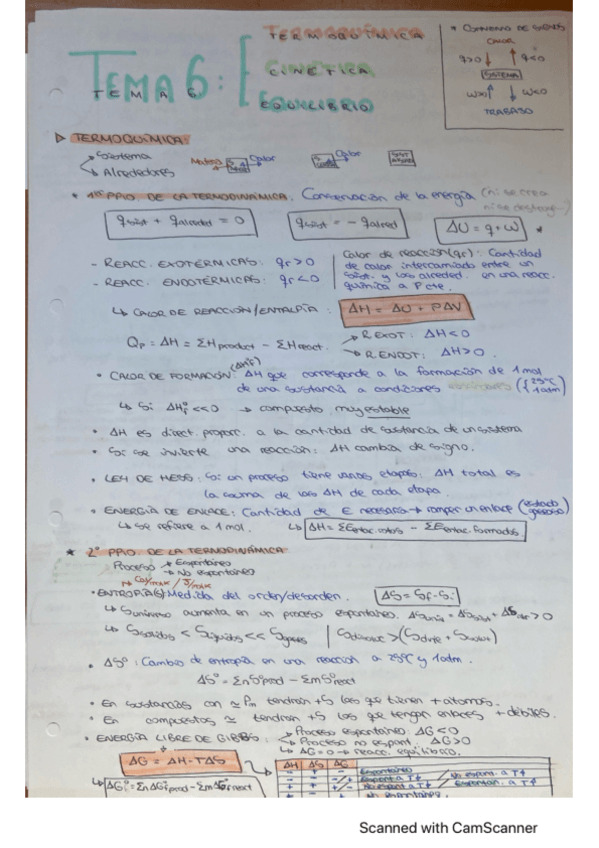 TERMOQUÍMICA
TEMA 6: CINÉTICA
EQUILIBRIO
* CONVENIO DE SIGNOS
CALOR
q>0 q<0
SISTEMA
W>0 W<0
TRABAJO
▷ TERMOQUÍMICA:
Sistema
Alrededores
Materia Calor Calor
* 1er PPIO DE LA TERMODINÁMICA. Conservación de la energía (ni se crea
ni se destruye)
qsist + qalreded = 0 qsist = - qalred ΔU = q + w *
- REACC. EXOTÉRMICAS: qr>0
- REACC. ENDOTÉRMICAS: qr<0
Calor de reacción (qr): Cantidad
de calor intercambiado entre un
sist. y los alreded. en una reacc.
química a P cte.
↳ CALOR DE REACCIÓN/ENTALPÍA: ΔH = ΔU + PΔV
Qp = ΔH = ΣHproduct - ΣHreact.
R.EXOT: ΔH<0
R.ENDOT: ΔH>0
• CALOR DE FORMACIÓN: (ΔHºf) ΔH que corresponde a la formación de 1 mol
de una sustancia a condiciones estándares ({25ºC
1atm)
↳ Si ΔHfº <<0 → compuesto muy estable
• ΔH es direct. proporc. a la cantidad de sustancia de un sistema
• Si se invierte una reacción: ΔH cambia de signo.
• LEY DE HESS: Si un proceso tiene varias etapas: ΔH total es
la suma de los ΔH de cada etapa.
• ENERGÍA DE ENLACE: Cantidad de E necesaria → romper un enlace (estado
gaseoso)
↳ se refiere a 1 mol. ↳ ΔH = ΣEenlac. rotos - ΣEenlac. formados
* 2º PPIO DE LA TERMODINÁMICA
Proceso → Espontáneo
→ No espontáneo
• ENTROPÍA(S): Medida del orden/desorden. ΔS = Sf - Si
↳ Suniverso aumenta en un proceso espontáneo. ΔSuniv = ΔSsist + ΔSalr > 0
↳ Ssólidos < Slíquidos << Sgases | Sdisoluc > (Sdvte + Ssoluto)
• ΔSº: Cambio de entropía en una reacción a 25ºC y 1atm.
ΔSº = ΣnSºprod - ΣmSºreact
• En sustancias con ≃ Pm tendrán +S las que tienen + átomos.
• En compuestos ≃ tendrán +S los que tengan enlaces + débiles.
• ENERGÍA LIBRE DE GIBBS:
Proceso espontáneo: ΔG<0
Proceso no espont. ΔG>0
ΔG = 0 → reacc. equilibrio.
ΔG = ΔH - TΔS
ΔH ΔS ΔG
- + - Espontáneo
- - -/+ Espont a T↓ No espont. a T↑
+ + +/- No espont a T↓ Espontán. a T↑
+ - + No espontáneo.
↳ ΔGº = ΣnΔGºfprod - ΣmΔGºfreact
Scanned with CamScanner